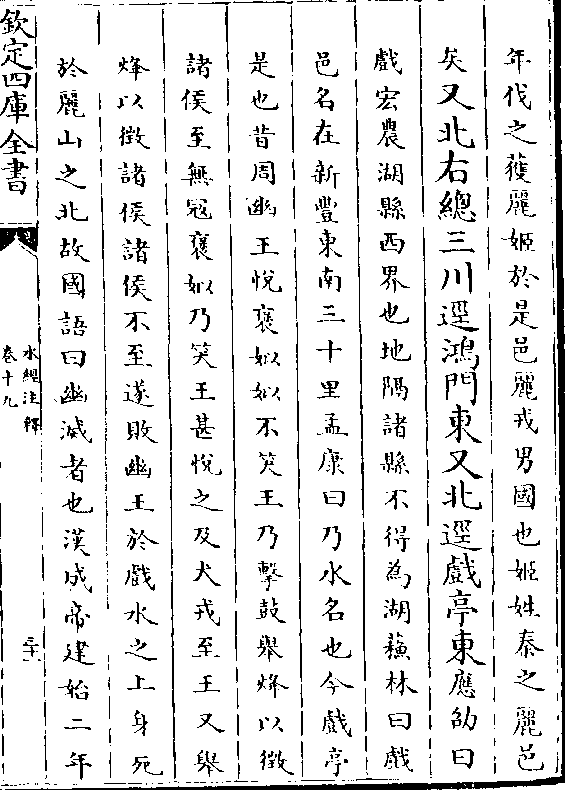 年伐之獲麗姬於是邑麗戎男國也姬姓秦之麗邑
矣又北右總三川逕鴻門東又北逕戲亭東應劭曰
戲宏農湖縣西界也地隔諸縣不得為湖蘓林曰戲
邑名在新豐東南三十里孟康曰乃水名也今戲亭
是也昔周幽王悅襃姒姒不笑王乃擊鼓舉烽以徴
諸侯至無冦襃姒乃笑王甚悅之及犬戎至王又舉
烽以徴諸侯諸侯不至遂敗幽王於戲水之上身死
於麗山之北故國語曰幽滅者也漢成帝建始二年
欽定四庫全書
水經注釋
卷十九